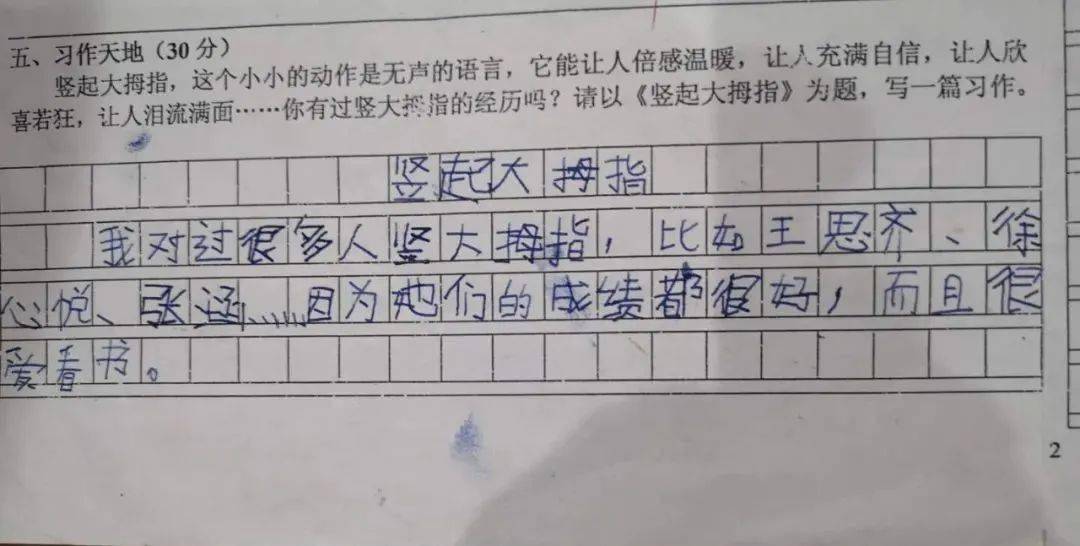 五、习作天地（30分）
竖起大拇指，这个小小的动作是无声的语言，它能让人倍感温暖，让人充满自信，让人欣
喜若狂，让人泪流满面……你有过竖大拇指的经历吗？请以《竖起大拇指》为题，写一篇习作。
竖起大拇指
我对过很多人竖大拇指，比如王思齐、徐
心悦、张涵……因为她们的成绩都很好，而且很
爱看书。
2